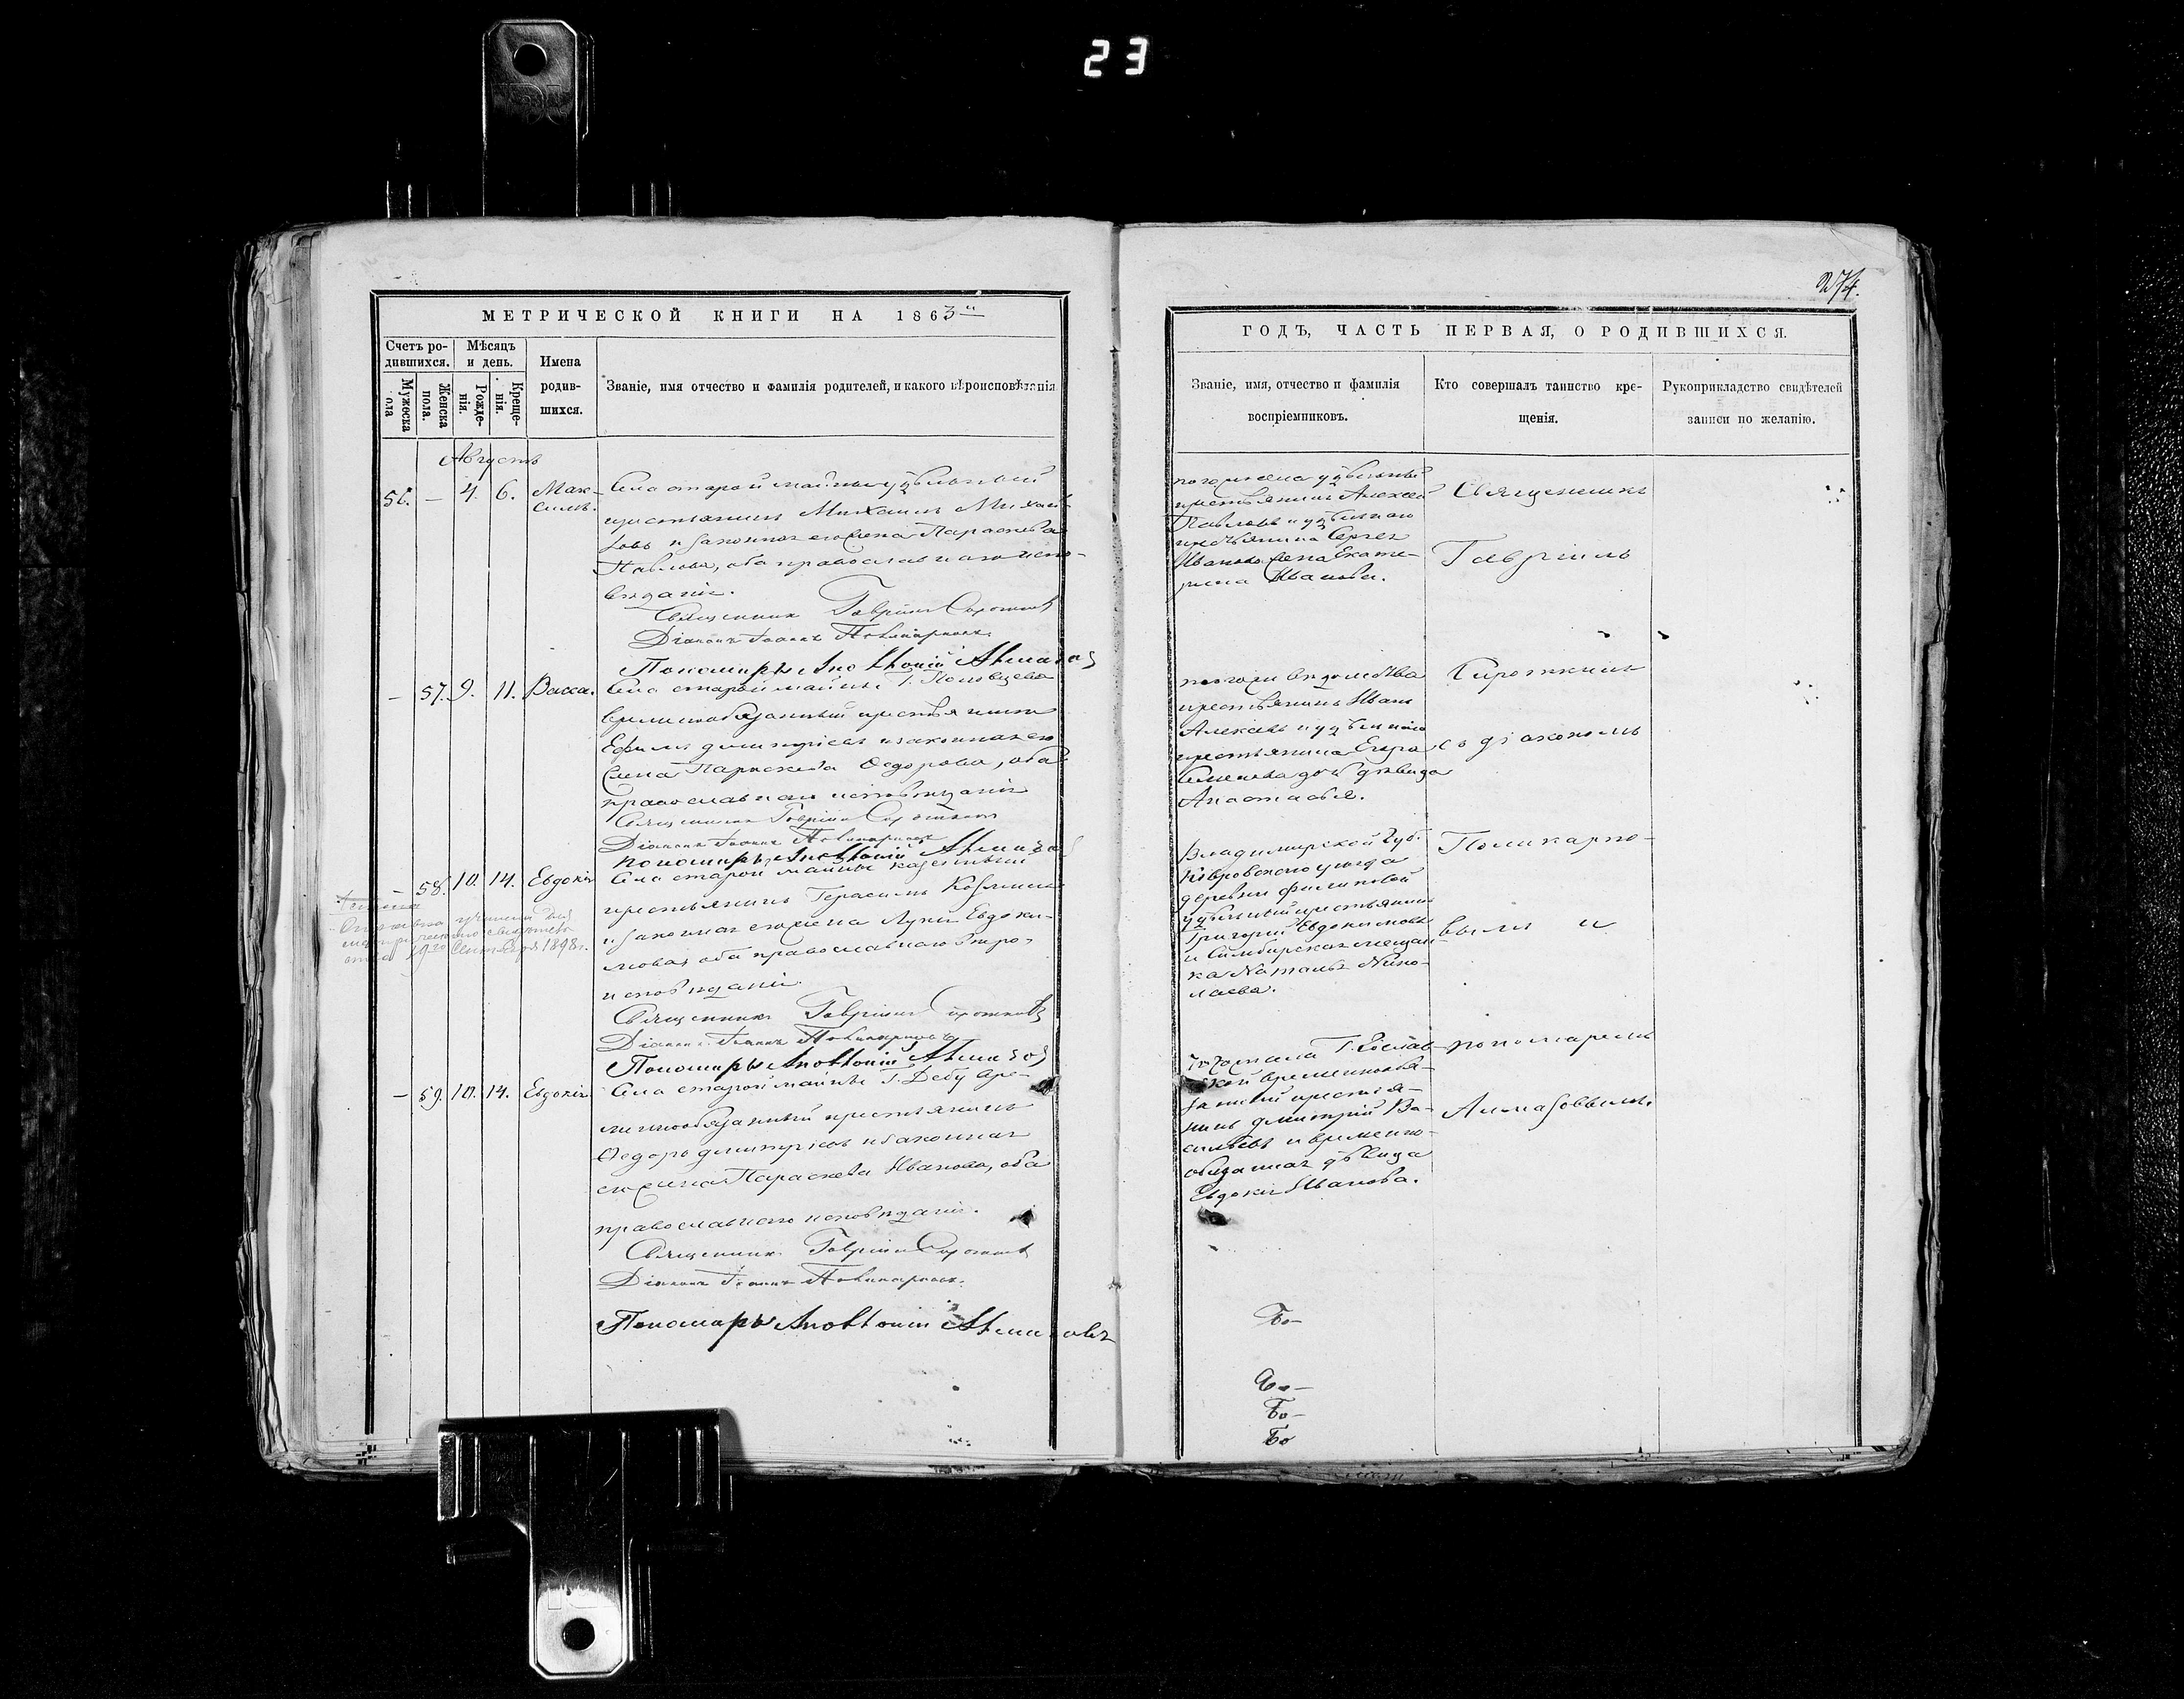 23
274.
МЕТРИЧЕСКОЙ КНИГИ НА 1863
Счетъ ро-
дившихся.
Мужеска
пола
Женска
пола.
Мѣсяцъ
и день.
Рожде-
нія.
Креще-
нія.
Имена
родив-
шихся.
Званіе, имя отчество и фамилія родителей, и какого вѣроисповѣданія
Августъ
56. — 4. 6. Мак-
симъ.
Села старой майны удѣльный
крестьянинъ Михаилъ Михай-
ловъ и законная его жена Параскева
Павлова, оба православнаго испо-
вѣданія.
Священникъ Гавріилъ Сироткинъ
Діаконъ Іоаннъ Поликарповъ
Пономарь
Алмазовъ
— 57. 9. 11. Васса.
Села старой майны Г.
временнообязанный крестьянинъ
Ефимъ Димитріевъ и законная его
жена Параскева Ѳедорова, оба
православнаго исповѣданія
Священникъ Гавріилъ Сироткинъ
Діаконъ Іоаннъ Поликарповъ
Пономарь
Алмазовъ
— 58. 10. 14. Евдокія
Села старой майны казенный
крестьянинъ Герасимъ Козминъ
и законная его жена Лукія Евдоки-
мова, оба православнаго вѣро-
исповѣданія.
Священникъ Гавріилъ Сироткинъ
Діаконъ Іоаннъ Поликарповъ
Пономарь
Алмазовъ
Сентября 1898 г.
— 59. 10. 14. Евдокія
Села старой майны Г. Дебу вре-
меннообязанный крестьянинъ
Ѳедоръ Димитріевъ и законная
его жена Параскева Иванова, оба
православнаго исповѣданія.
Священникъ Гавріилъ Сироткинъ
Діаконъ Іоаннъ Поликарповъ.
Пономарь
Алмазовъ
ГОДЪ, ЧАСТЬ ПЕРВАЯ, О РОДИВШИХСЯ.
Званіе, имя, отчество и фамилія
воспріемниковъ.
Кто совершалъ таинство кре-
щенія.
Рукоприкладство свидѣтелей
записи по желанію.
того же села удѣльный
крестьянинъ Алексѣй
Павловъ и удѣльнаго
крестьянина Сергея
Иванова жена Екате-
рина Иванова.
того же вѣдомства
крестьянинъ Иванъ
Алексѣевъ и удѣльнаго
крестьянина Егора
Семенова дочь дѣвица
Анастасья.
Владимирской губ.
Ковровского уѣзда
деревни
удѣльный крестьянинъ
Григорій Евдокимовъ
и Симбирская мещан-
ка Наталья Нико-
лаева.
того же села Г.
временнообя-
занный крестья-
нинъ Димитрій Ва-
сильевъ и временно-
обязанная дѣвица
Евдокія Иванова.
Священникъ
Гавріилъ
Сироткинъ
съ діакономъ
Поликарпо-
вымъ и
пономаремъ
Алмазовымъ.